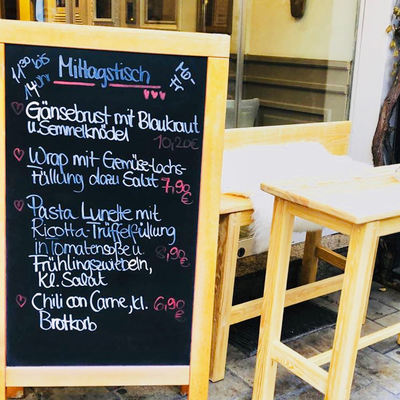 11³⁰ bis
14 Uhr
Mittagstisch
Gänsebrust mit Blaukraut
u. Semmelknödel 10,20€
Wrap mit Gemüse-Lachs-
Füllung dazu Salat 7,90
€
Pasta Lunette mit
Ricotta-Trüffelfüllung
in Tomatensoße u. 8,90
€
Frühlingszwiebeln,
kl. Salat
Chili con Carne, kl. 6,90
€
Brotkorb